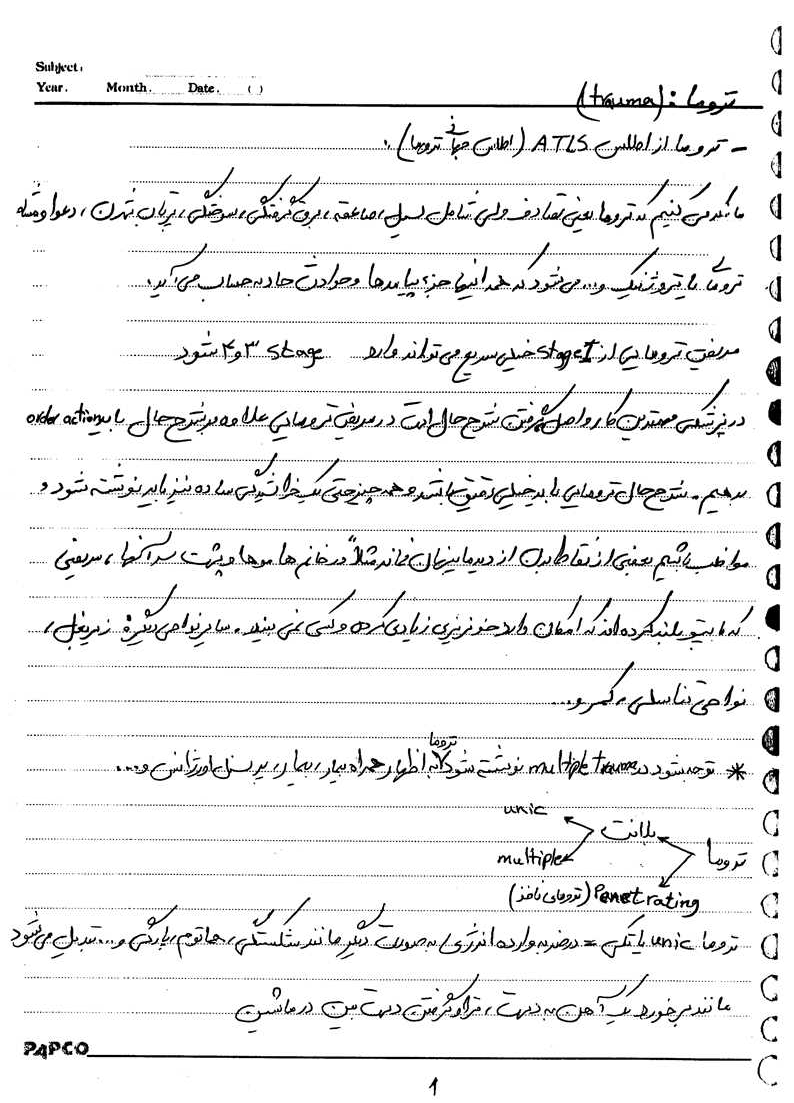 Subject:
Year. Month. Date. ( )
تروما : (trauma)
– تروما از اطلس ATLS (اطلس جهانی تروما) :
ما فکر می کنیم که تروما یعنی تصادف ولی شامل سیل، صاعقه، برق گرفتگی، سوختگی، پرتاب شدن، دعوا و مسئله
ترومای یاتروژنیک و... می شود که همه اینها جزء پیامدها و حوادث حاد به حساب می آید.
مریض ترومایی از stage I خیلی سریع می تواند وارد stage ۳ و ۴ شود
در پزشکی مهمترین کار و اصل گرفتن شرح حال است در مریض ترومایی علاوه بر شرح حال باید order action
بدهیم. شرح حال ترومایی باید خیلی دقیق باشد و همه چیز حتی یک خراشیدگی ساده نیز باید نوشته شود و
مواظب باشیم بعضی از نقاط بدن از دیدمان پنهان نماند مثلاً در خانم ها موها و پشت سر آنها، مریضی
که با پتو بلند کرده اند که امکان دارد خونریزی زیادی کرده و کسی نمی بیند. سایر نواحی دیگر: زیر بغل،
نواحی تناسلی، کمر و...
* توجه شود در multiple trauma نوشته شود تروما به اظهار همراه بیمار، بیمار، پرسنل اورژانس و...
تروما
بلانت
unic
multiple
Penetrating (ترومای نافذ)
تروما unic یا تکی = در ضربه وارده انرژی به صورت دیگر مانند شکستگی، هماتوم، پارگی و... تبدیل می شود
مانند برخورد یک آهن به دست، قرار گرفتن دست بین در ماشین
PAPCO
1